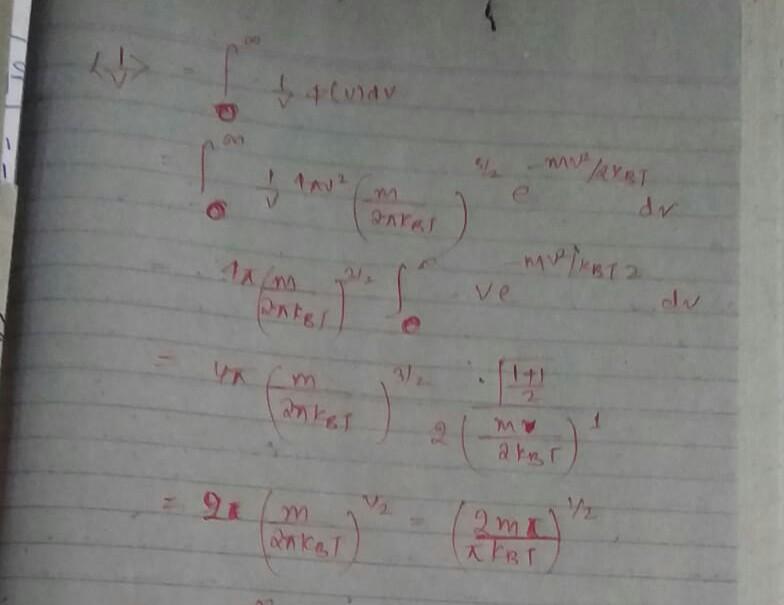 ⟨1/v⟩ = ∫_0^∞ 1/v f(v)dv
= ∫_0^∞ 1/v 4πv² (m/2πk_BT)^{3/2} e^{-mv²/2k_BT} dv
= 4π (m/2πk_BT)^{3/2} ∫_0^∞ v e^{-mv²/k_BT 2} dv
= 4π (m/2πk_BT)^{3/2} · Γ(1+1/2) / 2(m/2k_BT)^1
= 2 (m/2πk_BT)^{1/2} = (2m/πk_BT)^{1/2}